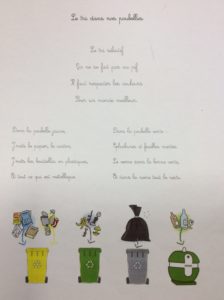 Le tri dans nos poubelles
Le tri sélectif
Ça ne se fait pas au pif
Il faut respecter les couleurs
Pour un monde meilleur.
Dans la poubelle jaune,
J'mets le papier, le carton
J'mets les bouteilles en plastique,
Et tout ce qui est métallique.
Dans la poubelle verte
Épluchures et feuilles mortes
Le verre dans la borne verte,
Et dans la noire tout le reste.